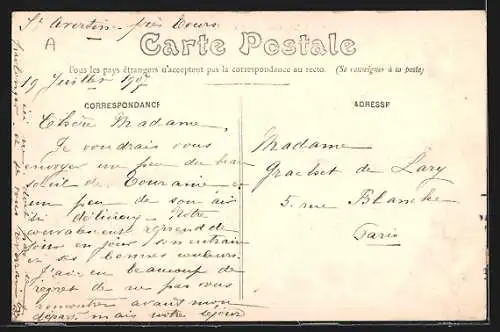 St Avertin - près Tours
A
Carte Postale
Tous les pays étrangers n'acceptent pas la correspondance au recto. (Se renseigner à la poste)
19 Juillet 1907
CORRESPONDANCE
Chère Madame,
Je voudrais vous
envoyer un peu du beau
soleil de Touraine et
un peu de son air
si délicieux. Notre
convalescente reprend de
jour en jour son entrain
et ses bonnes couleurs.
J'ai eu beaucoup de
regret de ne pas vous
rencontrer avant mon
départ, mais notre séjour
ADRESSE
Madame
de Lary
5 rue Blanche
Paris